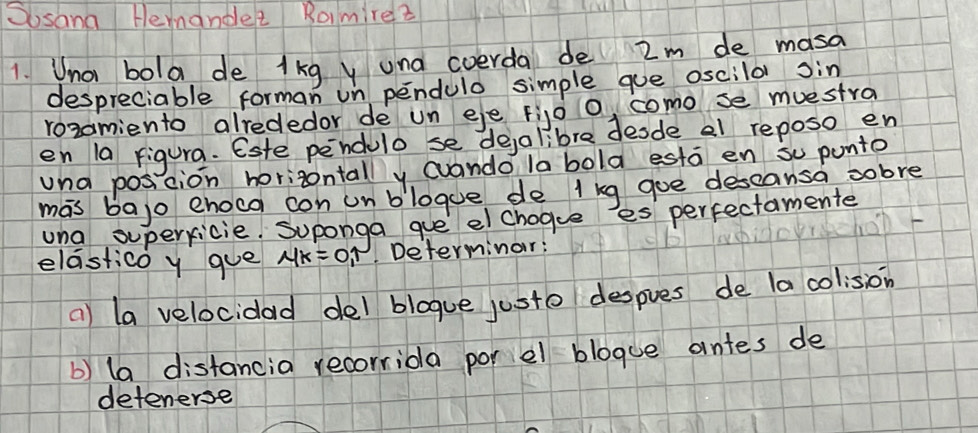 Susana Hernandez Ramirez
1. Una bola de 1kg y una cuerda de 2m de masa
despreciable forman un péndulo simple que oscila sin
rozamiento alrededor de un eje fijo O, como se muestra
en la figura. Este péndulo se deja libre desde el reposo en
una posición horizontal y cuando la bola está en su punto
más bajo choca con un bloque de 1 kg que descansa sobre
una superficie. Suponga que el choque es perfectamente
elástico y que Mk = 0,1. Determinar:
a) la velocidad del bloque justo despues de la colisión
b) la distancia recorrida por el bloque antes de
detenerse